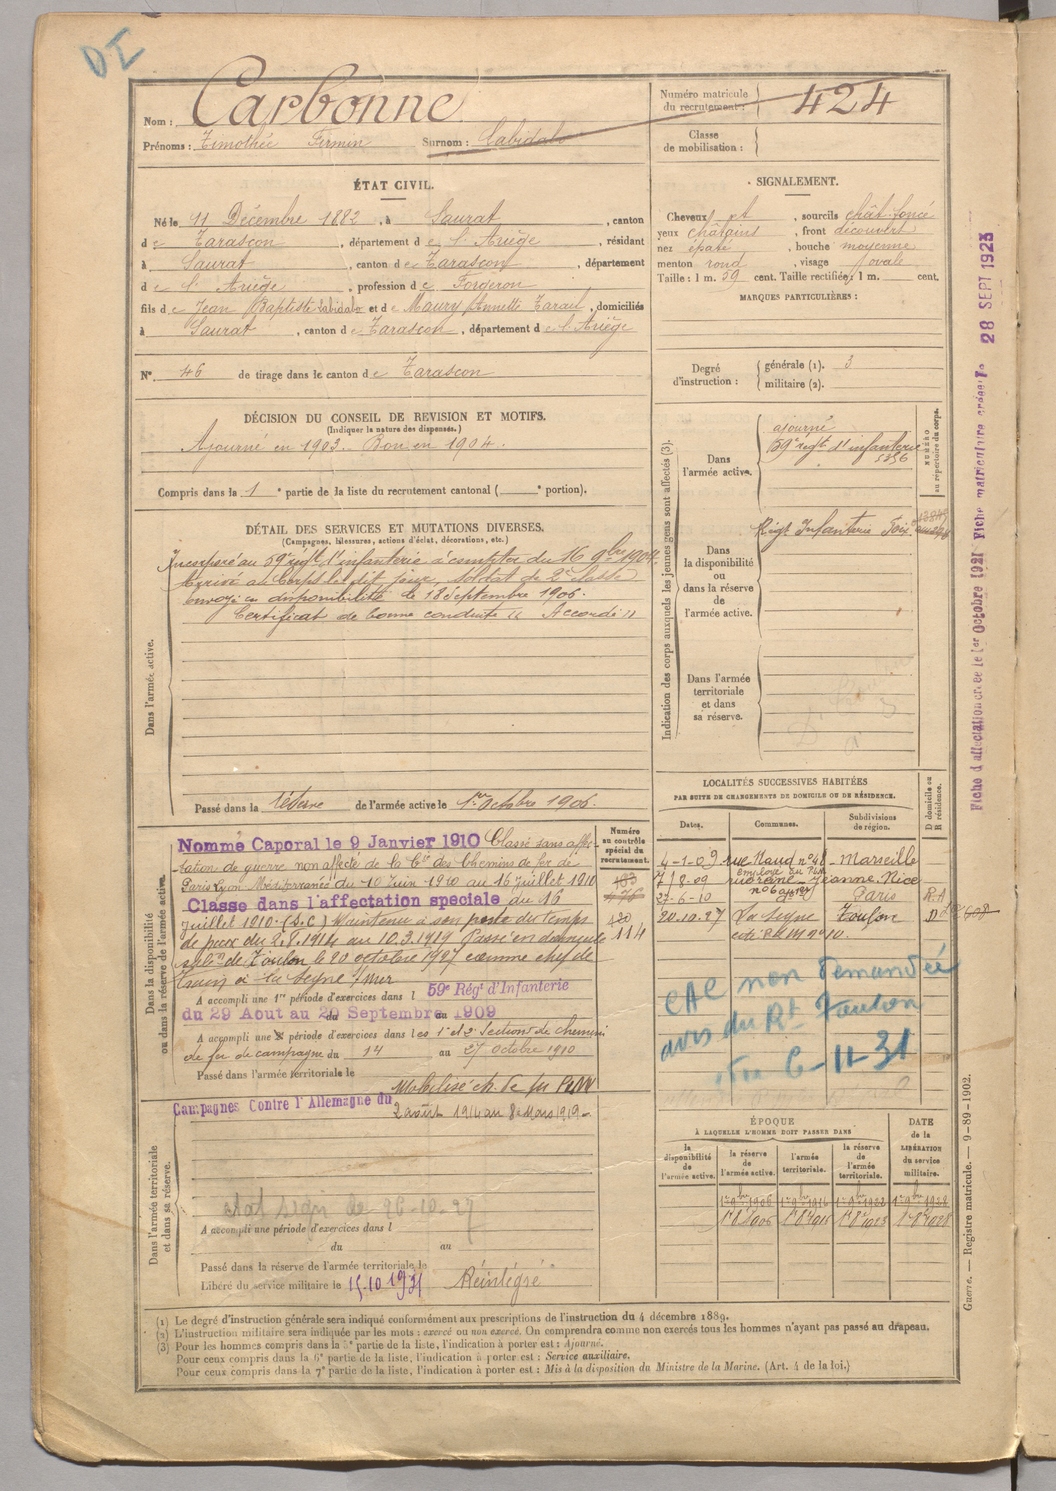 DI
Nom : Carbonne
Prénoms : Timothée Firmin Surnom : Cabidalo
Numéro matricule du recrutement : 424
Classe de mobilisation :
ÉTAT CIVIL.
Né le 11 Décembre 1882, à Saurat, canton
de Tarascon, département de l'Ariège, résidant
à Saurat, canton de Tarascon, département
de l'Ariège, profession de Forgeron
fils de Jean Baptiste Cabidalo et de Maury Annette Zarail, domiciliés
à Saurat, canton de Tarascon, département de l'Ariège
N° 46 de tirage dans le canton de Tarascon
SIGNALEMENT.
Cheveux et, sourcils chât. foncé
yeux châtains, front découvert
nez épaté, bouche moyenne
menton rond, visage ovale
Taille : 1 m. 59 cent. Taille rectifiée : 1 m. cent.
MARQUES PARTICULIÈRES :
Degré d'instruction : générale (1). 3
militaire (2).
DÉCISION DU CONSEIL DE REVISION ET MOTIFS.
(Indiquer la nature des dispenses.)
Ajourné en 1903. Bon en 1904.
Compris dans la 1e partie de la liste du recrutement cantonal ( e portion).
DÉTAIL DES SERVICES ET MUTATIONS DIVERSES.
(Campagnes, blessures, actions d'éclat, décorations, etc.)
Dans l'armée active.
Incorporé au 59e régt d'infanterie à compter du 16 9bre 1904.
Arrivé au Corps le dit jour, Soldat de 2e classe
envoyé en disponibilité le 18 Septembre 1906.
Certificat de bonne conduite "Accordé"
Passé dans la réserve de l'armée active le 1er Octobre 1906.
Indication des corps auxquels les jeunes gens sont affectés (3).
NUMÉRO au répertoire du corps.
Dans l'armée active.
ajourné
59e régt d'infanterie
5356
Dans la disponibilité ou dans la réserve de l'armée active.
Régt Infanterie Foix
Dans l'armée territoriale et dans sa réserve.
Fiche d'affectation créée le 1er Octobre 1921 Fiche matriculaire créée le 28 SEPT 1923
Dans la disponibilité ou dans la réserve de l'armée active.
Numéro au contrôle spécial du recrutement.
Nommé Caporal le 9 Janvier 1910 Classé sans affec-
tation de guerre non affecté de la Cie des Chemins de fer de
Paris Lyon Méditerranée du 10 Juin 1910 au 16 juillet 1910
Classe dans l'affectation speciale du 16
juillet 1910. (S.C) Maintenu à son poste du temps
de paix du 2.8.1914 au 10.3.1919 Passé en domicile
subon de Toulon le 20 octobre 1927 comme chef de
train à la Seyne s/mer
114
A accompli une 1re période d'exercices dans l 59e Régt d'Infanterie
du 29 Aout au Septembre 1909
A accompli une 2e période d'exercices dans les 1e et 2e Sections de chemins
de fer de campagne du 14 au 27 octobre 1910
Passé dans l'armée territoriale le
Mobilisé ch. de fer PLM
Campagnes Contre l'Allemagne du 2 août 1914 au 8 Mars 1919
LOCALITÉS SUCCESSIVES HABITÉES
PAR SUITE DE CHANGEMENTS DE DOMICILE OU DE RÉSIDENCE.
Dates. Communes. Subdivisions de région. D domicile ou R résidence.
4-1-09 rue Naud n° 48 Marseille
7/8-09 Jeanne Nice
27-6-10 Paris R.A
20.10.27 La Seyne Toulon D
CAC non demandée
avis du Rt Toulon
6-11-31
ÉPOQUE
À LAQUELLE L'HOMME DOIT PASSER DANS
DATE de la LIBÉRATION du service militaire.
la disponibilité de l'armée active.
la réserve de l'armée active.
l'armée territoriale.
la réserve de l'armée territoriale.
1er 9bre 1906 1er 9bre 1916 1er 9bre 1922 1er 9bre 1928
Dans l'armée territoriale et dans sa réserve.
état sign de 26-10-27
A accompli une période d'exercices dans l
du au
Passé dans la réserve de l'armée territoriale le
Libéré du service militaire le 15.10 1931 Réintégré
(1) Le degré d'instruction générale sera indiqué conformément aux prescriptions de l'instruction du 4 décembre 1889.
(2) L'instruction militaire sera indiquée par les mots : exercé ou non exercé. On comprendra comme non exercés tous les hommes n'ayant pas passé au drapeau.
(3) Pour les hommes compris dans la 5e partie de la liste, l'indication à porter est : Ajourné.
Pour ceux compris dans la 6e partie de la liste, l'indication à porter est : Service auxiliaire.
Pour ceux compris dans la 7e partie de la liste, l'indication à porter est : Mis à la disposition du Ministre de la Marine. (Art. 4 de la loi.)
Guerre. — Registre matricule. — 9-89-1902.